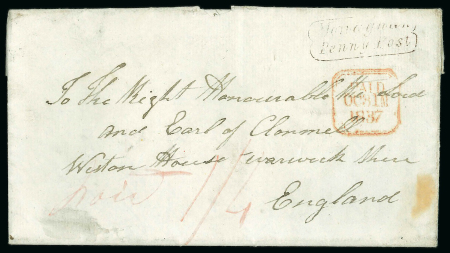 Penny Post
PAID
OC 31 M
1837
To The Right Honourable the Lord
and Earl of Clonmell
Weston House warwick shire
England
paid 1/4